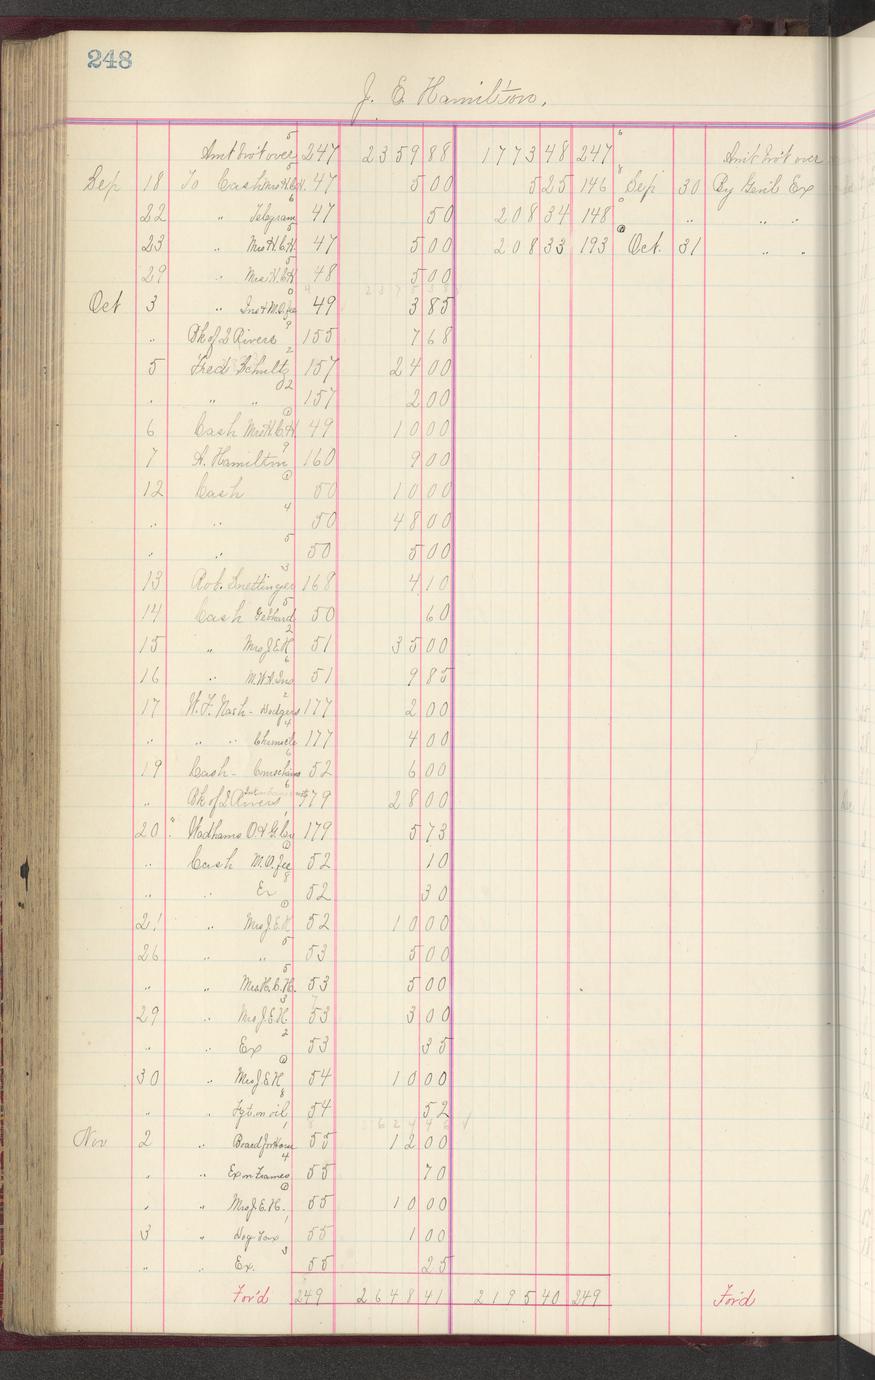 248
J. E. Hamilton.
Amt bro't over 5 247 2359 88 1773 48 247 6 Amt bro't over
Sep 18 To Cash Mrs H.C.H. 5 47 5 00 5 25 146 8 Sep 30 By Genl Ex
22 " Telegram 6 47 50 208 34 148 " "  "
23 " Mrs H.C.H. 5 47 5 00 208 33 193 Oct. 31 " "
29 " Mrs H.C.H 5 48 5 00
Oct 3 " Ins & M.O. fee 49 3 85
" Bk of 2 Rivers 9 155 7 68
5 Fred Schultz 2 157 24 00
" " " 157 2 00
6 Cash Mrs H.C.H. 49 10 00
7 H. Hamilton 9 160 9 00
12 Cash 50 10 00
" " 4 50 48 00
" " 5 50 5 00
13 Rob. 3 168 4 10
14 Cash Gebhard 5 50 60
15 " Mrs J.E.H 2 51 35 00
16 " M.W.A. Ins 6 51 9 85
17 W.F. Nash - Dodgers 2 177 2 00
" " " Chronicle 4 177 4 00
19 Cash - 6 52 6 00
" Bk of 2 Rivers 6 179 28 00
20 " Wadhams O. & G. Co 1 179 5 73
" Cash M.O. fee 52 10
" " Ex 8 52 30
21 " Mrs J.E.H 52 10 00
26 " " 5 53 5 00
" " Mrs H.C.H. 5 53 5 00
29 " Mrs J.E.H. 3 53 3 00
" " Ex 2 53 35
30 " Mrs J.E.H 54 10 00
" " Fgt. on oil 8 54 52
Nov 2 " Board for Horse 1 55 12 00
" " Ex on Frames 4 55 70
" " Mrs J.E.H. 55 10 00
3 " Dog Tax 1 55 1 00
" " Ex. 3 55 25
For'd 249 2648 41 2195 40 249 For'd